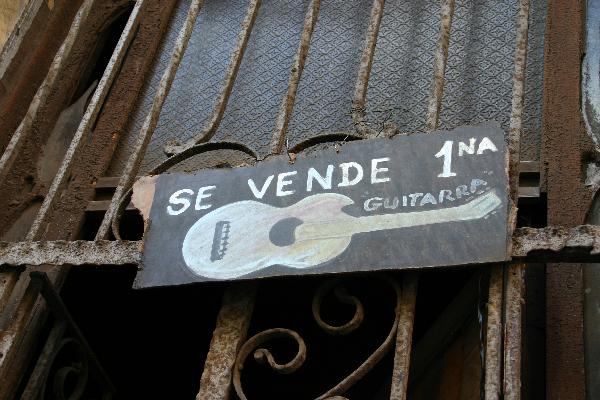 SE VENDE 1NA
GUITARRA